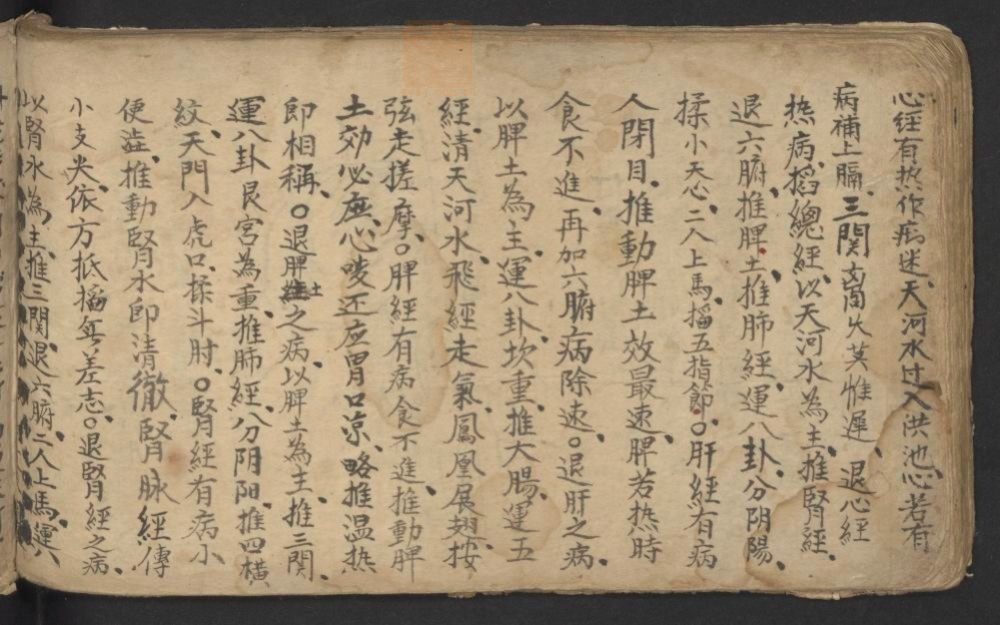 心经有热作痴迷、天河水过入洪池、心若有
病補上膈、三関離火莫惟遲、退心經
热病、掐總經、以天河水為主、推腎經、
退六腑、推脾土、推肺經、運八卦、分阴陽、
揉小天心、二人上馬、掐五指節。肝經有病
人閉目、推動脾土效最速、脾若热時
食不進、再加六腑病除速。退肝之病、
以脾土為主、運八卦、坎重、推大腸、運五
經、清天河水、飛經走氣、鳳凰展翅、按
弦走搓摩。脾經有病食不進、推動脾
土効必應、心㖡还应胃口凉、略推温热
即相稱。退脾土之病、以脾土為主、推三関、
運八卦、艮宫為重、推肺經、分阴阳、推四横
紋、天門入虎口、揉斗肘。腎經有病小
便澁、推動腎水即清徹、腎脉經傳
小支尖、依方抵掐無差忒。退腎經之病、
以腎水為主、推三関、退六腑、二人上馬、運八